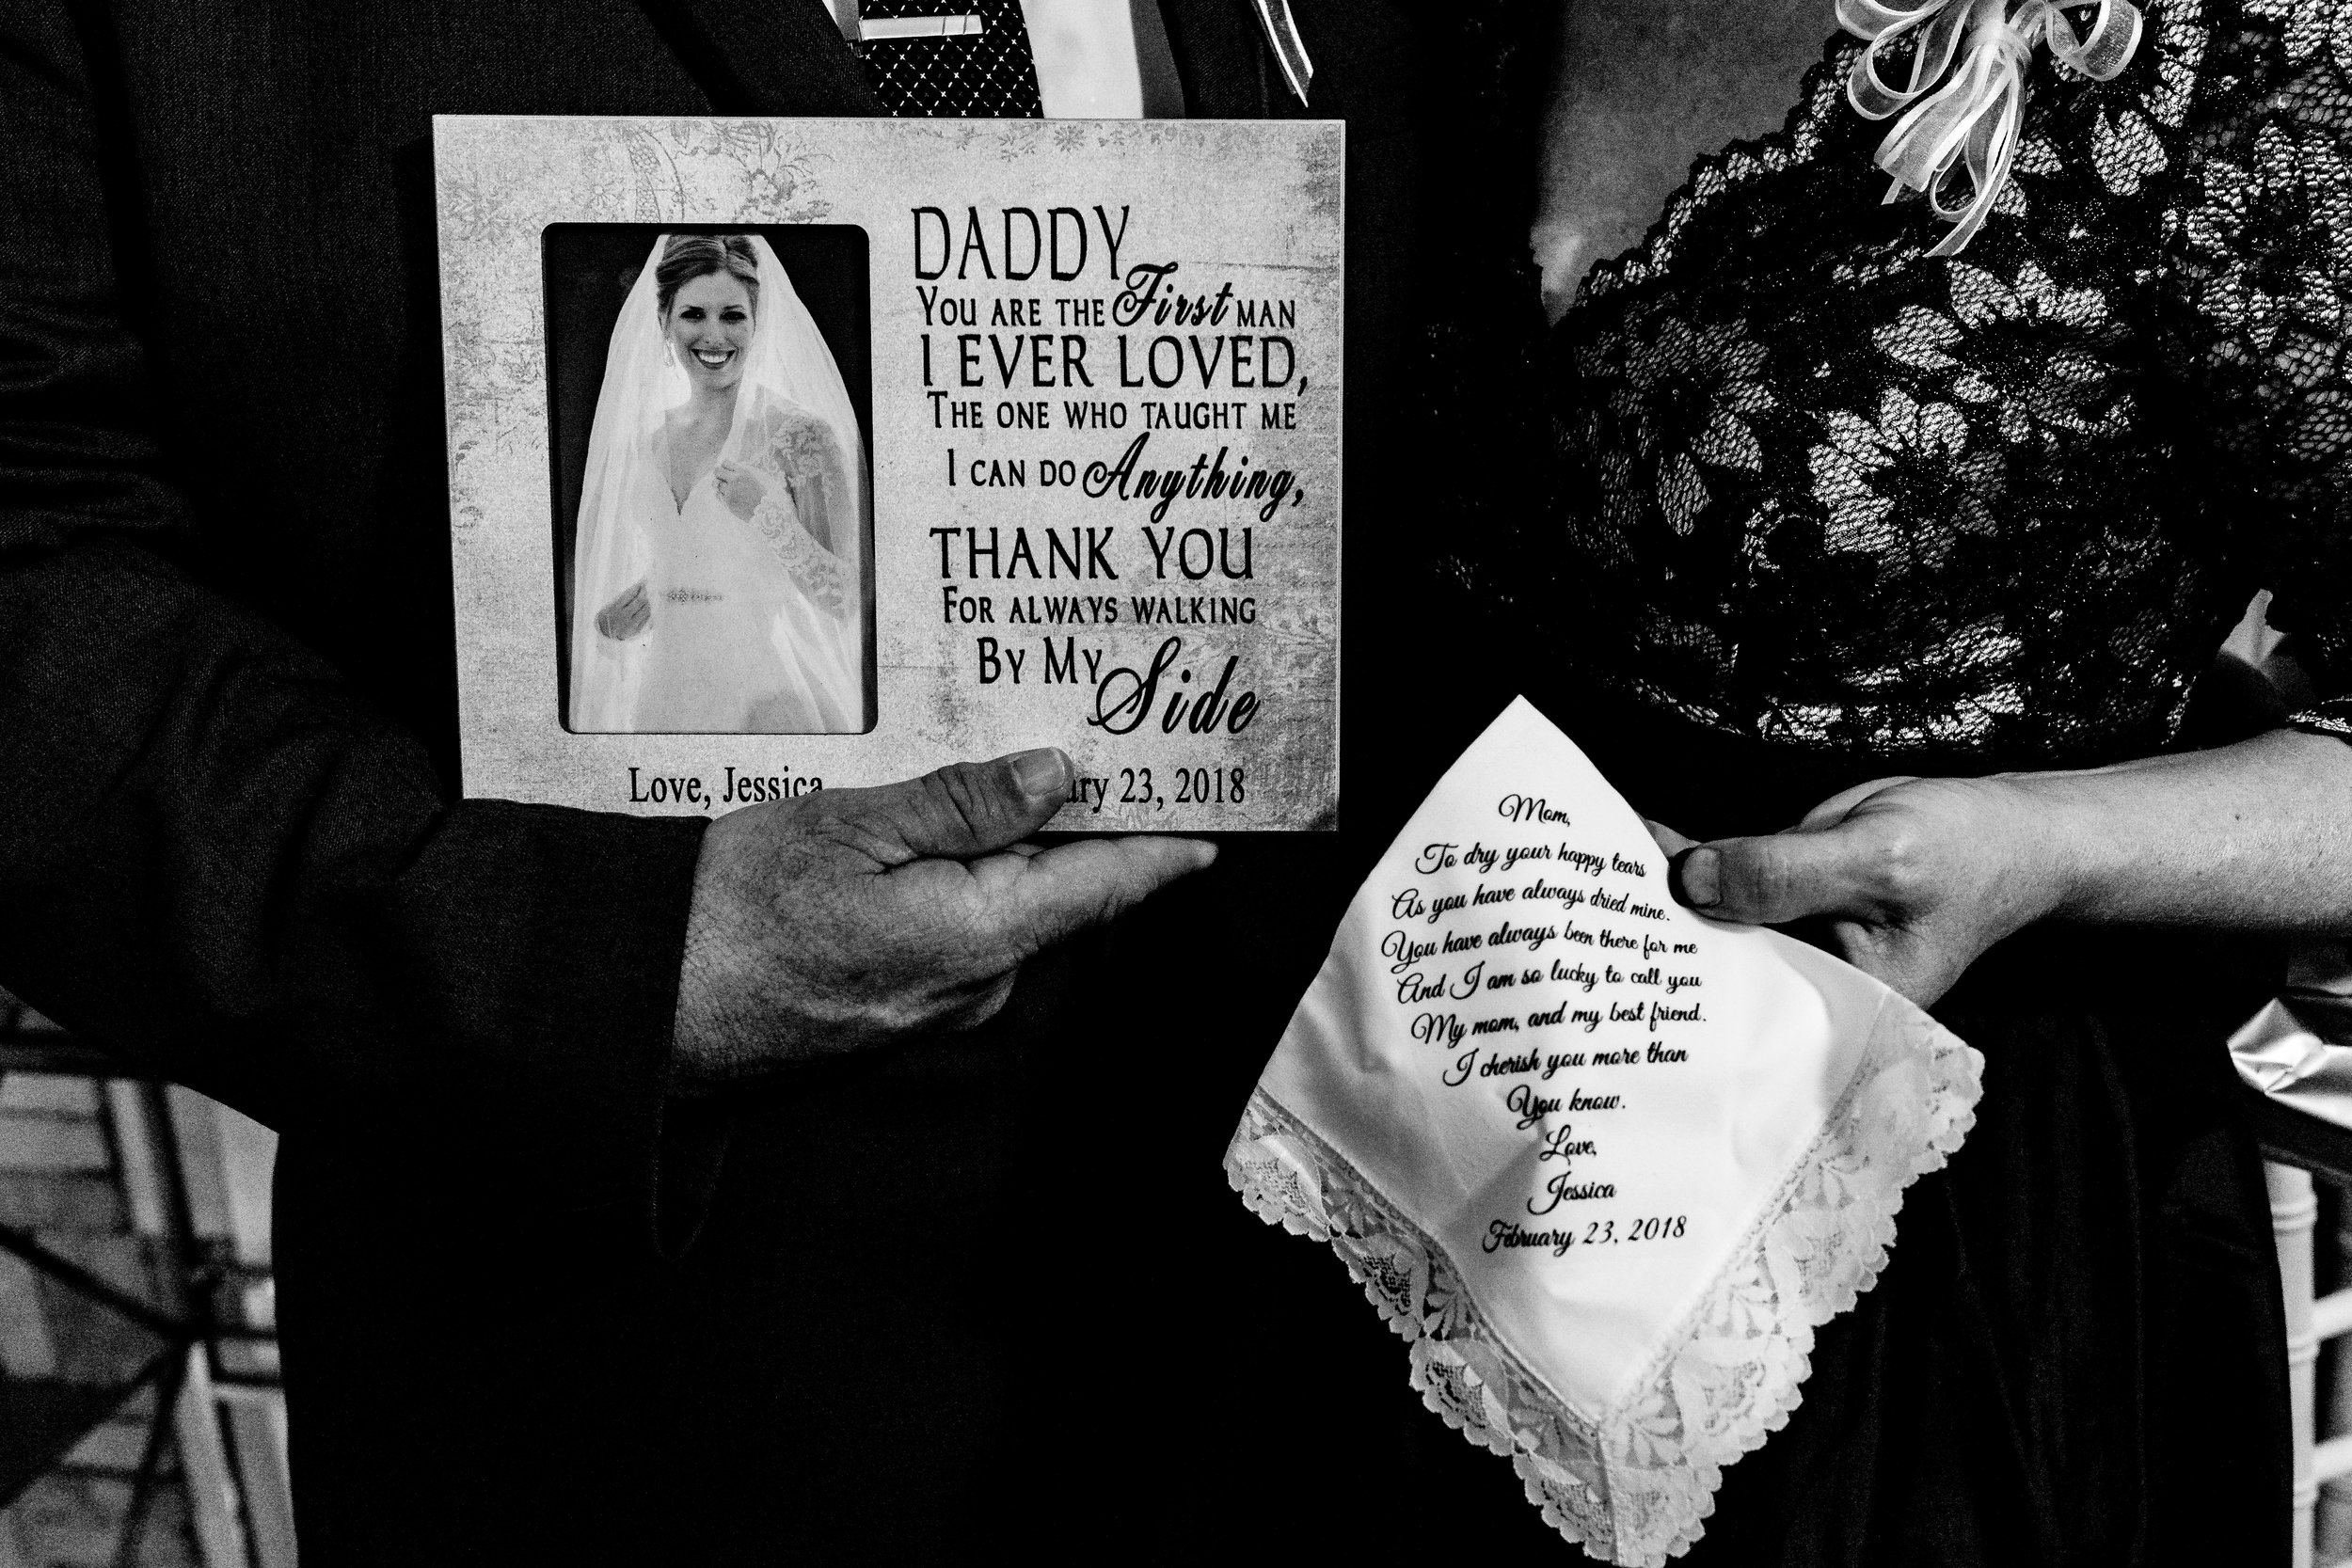 DADDY
YOU ARE THE First MAN
I EVER LOVED,
THE ONE WHO TAUGHT ME
I CAN DO Anything,
THANK YOU
FOR ALWAYS WALKING
BY MY Side
Love, Jessica
ary 23, 2018
Mom,
To dry your happy tears
As you have always dried mine.
You have always been there for me
And I am so lucky to call you
My mom, and my best friend.
I cherish you more than
You know.
Love,
Jessica
February 23, 2018